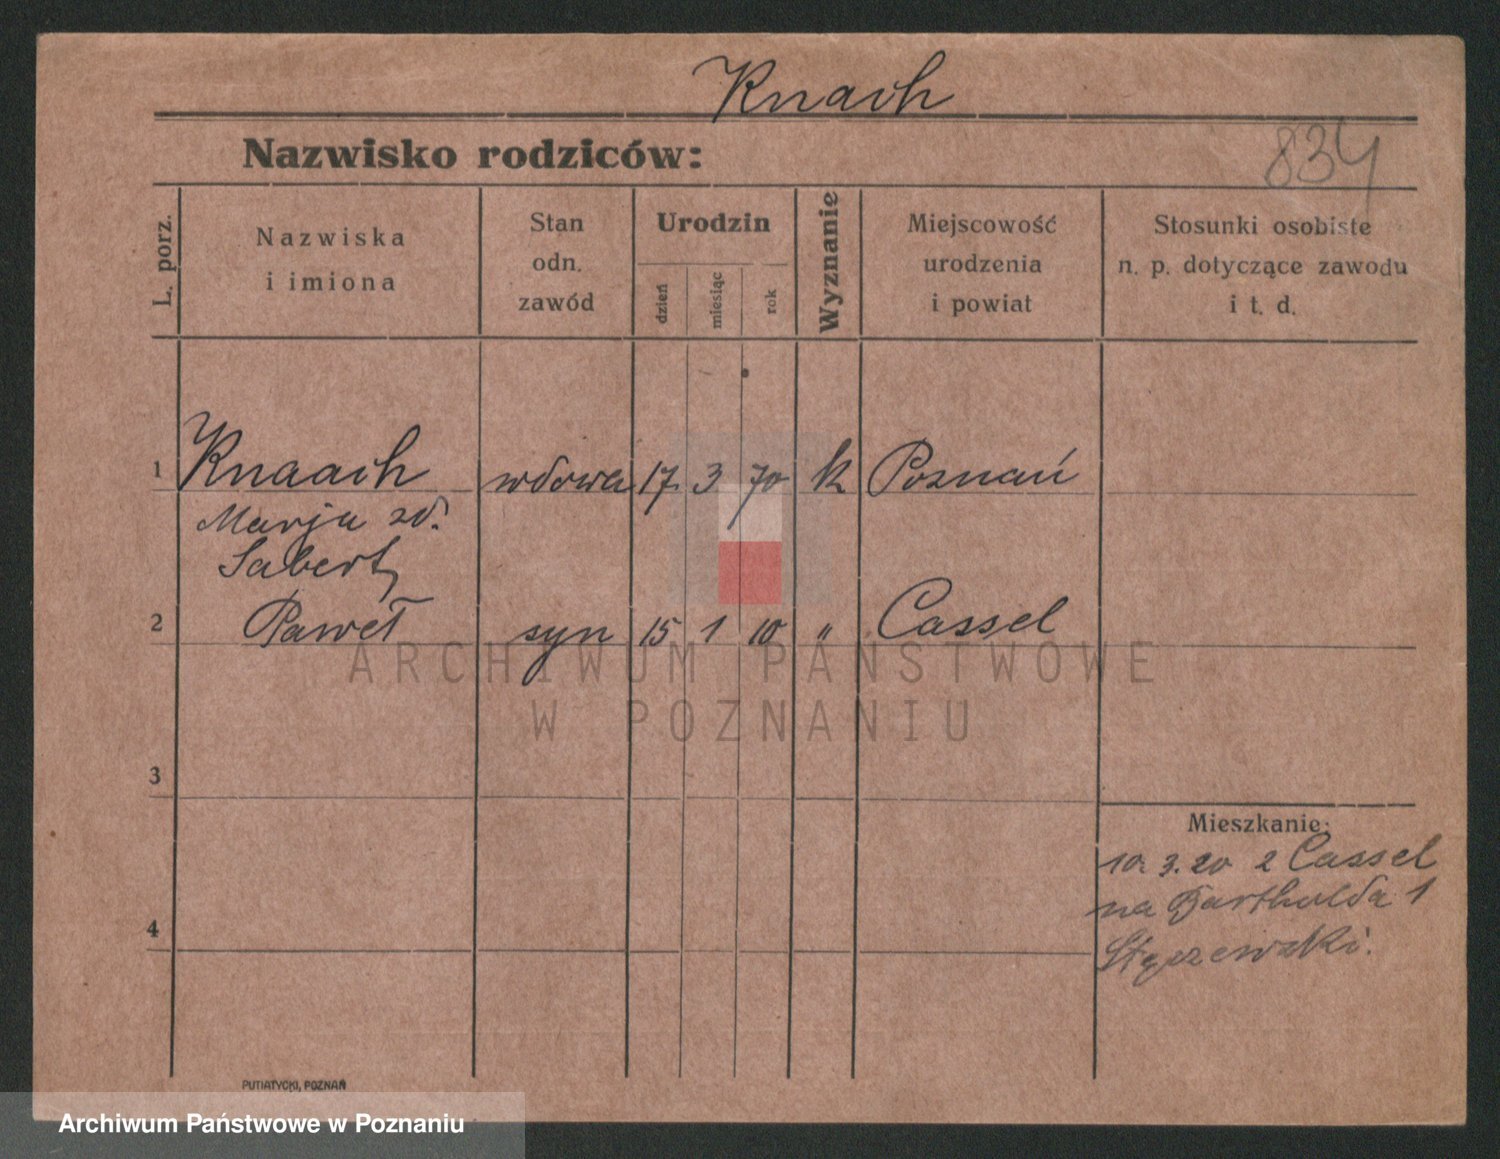 Knach
834
Nazwisko rodziców:
L. porz.
Nazwiska
i imiona
Stan
odn.
zawód
Urodzin
dzień
miesiąc
rok
Wyznanie
Miejscowość
urodzenia
i powiat
Stosunki osobiste
n. p. dotyczące zawodu
i t. d.
1 Knaach wdowa 17. 3 70 k Poznań
Marja zd.
Sabert
2 Paweł syn 15 1 10 " Cassel
ARCHIWUM PAŃSTWOWE
W POZNANIU
3
Mieszkanie:
10. 3. 20 z Cassel
na Bartholda 1
4
PUTIATYCKI, POZNAŃ
Archiwum Państwowe w Poznaniu